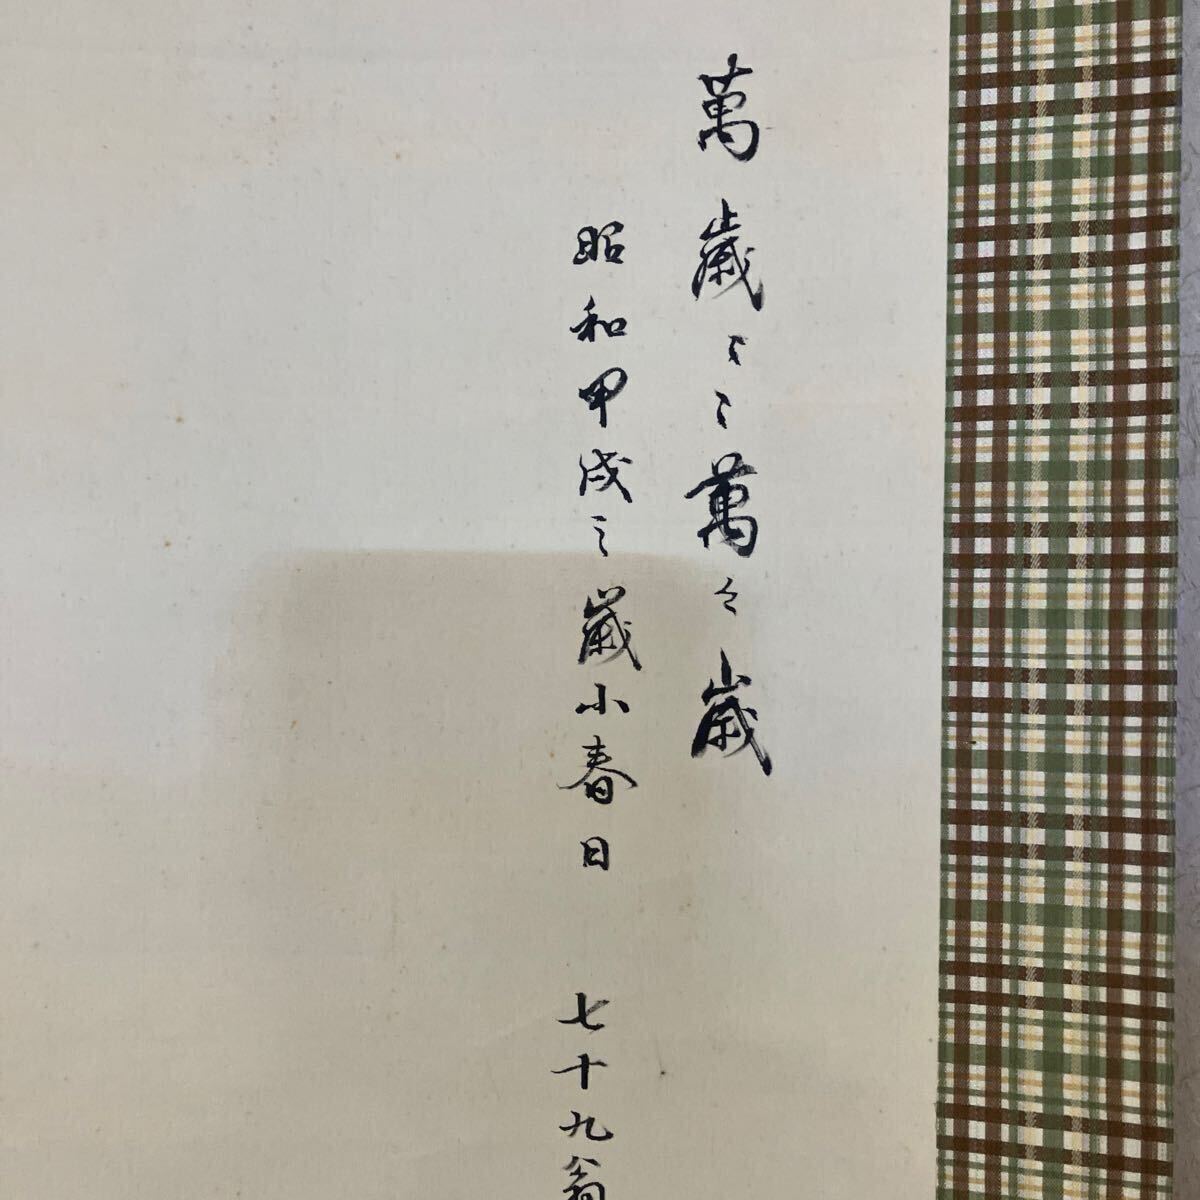 萬歳〻〻萬々歳
昭和甲戌之歳小春日 七十九翁